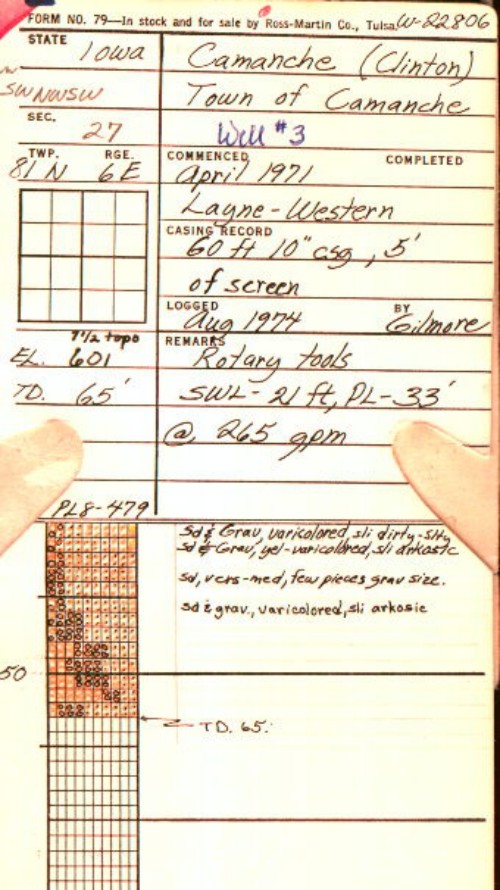 FORM NO. 79—In stock and for sale by Ross-Martin Co., Tulsa. W-22806
STATE Iowa
Camanche (Clinton)
SWNWSW
Town of Camanche
SEC. 27
Well #3
TWP. 81 N RGE. 6 E
COMMENCED April 1971 COMPLETED
Layne-Western
CASING RECORD
60 ft 10" csg, 5'
of screen
LOGGED Aug 1974 BY Gilmore
7½ topo
EL. 601
REMARKS Rotary tools
TD. 65'
SWL- 21 ft, PL-33'
@ 265 gpm
PL8-479
Sd & Grav, varicolored, sli dirty-slty
Sd & Grav, yel-varicolored, sli arkosic
Sd, vcrs-med, few pieces grav size.
Sd & grav., varicolored, sli arkosic
50
T.D. 65.